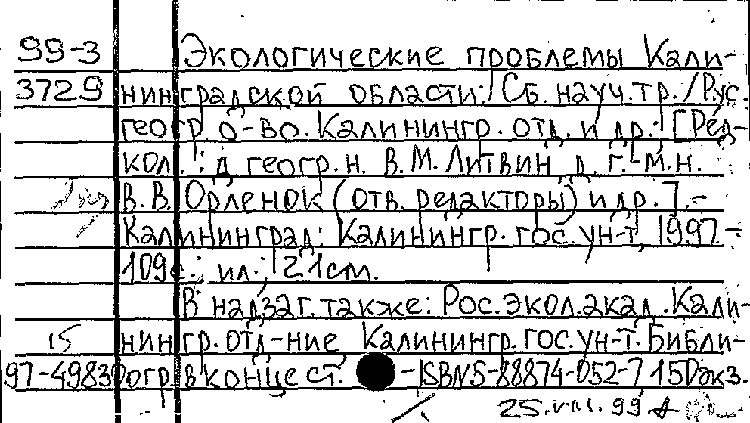 99-3 Экологические проблемы Кали-
3729 нинградской области: Сб. науч. тр. / Рус.
геогр. о-во. Калинингр. отд. и др.; [Ред-
кол.: д. геогр. н. В.М. Литвин, д. г.-м. н.
В.В. Орленок (отв. редакторы) и др.]. -
Калининград: Калинингр. гос. ун-т, 1997. -
109 с.: ил.; 21 см.
В надзаг. также: Рос. экол. акад. Кали-
15 нингр. отд-ние, Калинингр. гос. ун-т. Библи-
97-49830 огр. в конце ст. - ISBN 5-88874-052-7, 150 экз.
25.VIII.99